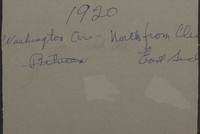 1920
Washington Ave - North from Cle
Between East Side